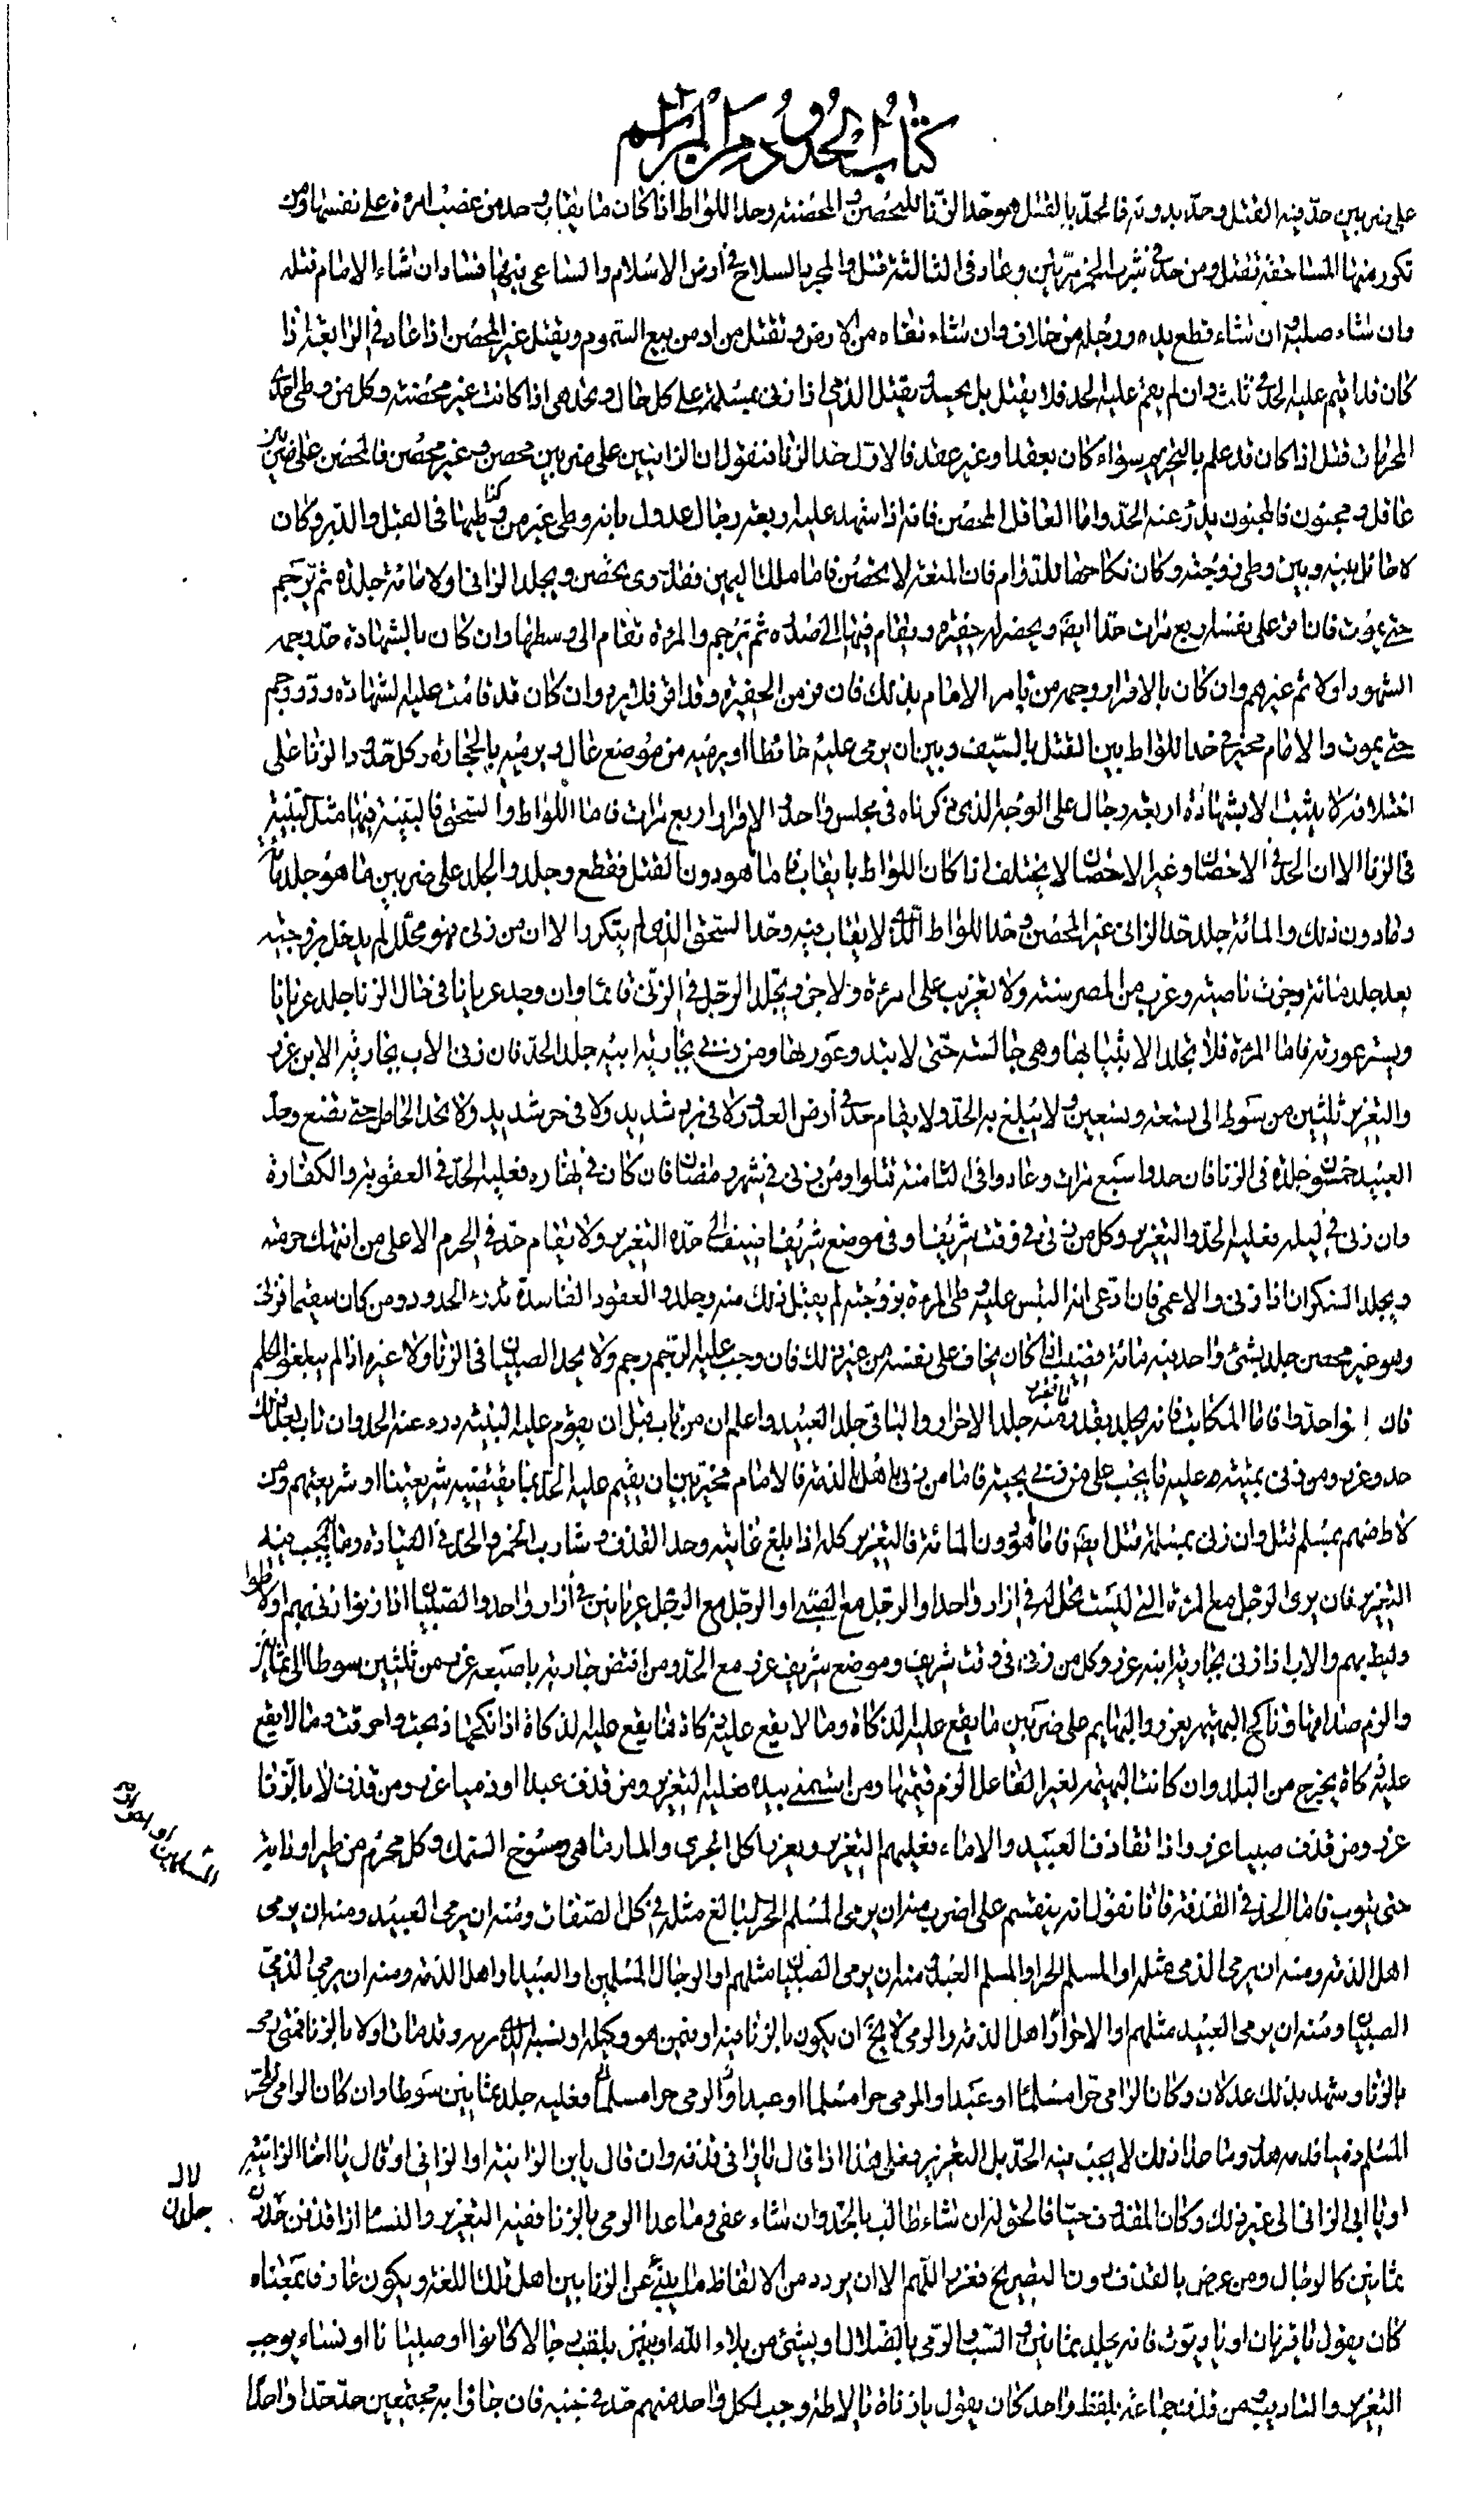 كتاب الحدود من المراسم
على ضربين حد فيه القتل وحد بدونه فالحد بالقتل هو حد الزنا للمحصن والمحصنة وحد اللواط اذا كان ما يقاب وحد من غصب امرءة على نفسها ومن
تكرر منها المساحقة تقتل ومن حد في شرب الخمر مرتين وعاد في الثالثة قتل والمجرد السلاح في أرض الاسلام والساعى فيها فسادا ان شاء الامام قتله
وان شاء صلبه وان شاء قطع يده ورجله من خلاف وان شاء نفاه من الارض وتقتل من ادمن بيع السموم ويقتل غير المحصن اذا عاد في الرابعة اذا
كان قد اقيم عليه الحد في ثلث وان لم يقم عليه الحد فلا يقتل بل يحد ويقتل الذمي اذا زنى بمسلمة على كل حال وتحد هى اذا كانت غير محصنة وكل من وطى احدى
المحرمات قتل اذا كان قد علم بالتحريم سواء كان بعقد او غير عقد فالاول حد الزنا فنقول ان الزانيين على ضربين محصن وغير محصن فالمحصن على ضربين
عاقل ومجنون فالمجنون يدرء عنه الحد واما العاقل المحصن فانه اذا شهد عليه اربعة رجال عدول بانه وطى غير من وطيها في القبل والدبر وكان
لا حائل بينه وبين وطى زوجته وكان نكاحها للدوام فان المتعة لا تحصن فاما ملك اليمين فقد روى يحصن ويجلد الزاني اولا مائة جلدة ثم يرجم
حتى يموت فان اقر على نفسه اربع مرات حد ايضا ويحضر له حفيرة ويقام فيها الى صدره ثم يرجم والمرءة تقام الى وسطها وان كان بالشهادة حد رجمه
الشهود اولا ثم غيرهم وان كان بالاقرار رجمه من يأمره الامام بذلك فان فر من الحفيرة وقد اقر فلا يرد وان كان قد قامت عليه الشهادة رد ورجم
حتى يموت والامام مخير في حد اللواط بين القتل بالسيف وبين ان يرمى عليه حائطا او يرميه من موضع عال او يرميه بالحجارة وكل حدود الزنا على
اختلافه لا يثبت الا بشهادة اربعة رجال على الوجه الذى ذكرناه في مجلس واحد او الاقرار اربع مرات فاما اللواط والسحق فالبينة فيها مثل البينة
في الزنا الا ان الحد في الاحصان وغير الاحصان لا يختلف اذا كان اللواط بايقاب فاما ما هو دون القتل فقطع وجلد والجلد على ضربين ما هو جلد مائة
وما دون ذلك والمائة جلد حد الزانى غير المحصن وحد اللواط الذى لا يقاب فيه وحد السحق الذى لم يتكرر الا ان من زنى وهو مملك لم يدخل بزوجته
بعد جلد مائة وجزت ناصيته وغرب من المصر سنة ولا تغريب على امرءة ولا جز ويجلد الرجل في الزنى قائما وان وجد عريانا في حال الزنا جلد عريانا
ويستر عورته فاما المرءة فلا تجلد الا بثيابها وهى جالسة حتى لا تبدو عورتها ومن زنى بجارية ابيه جلد الحد فان زنى الاب بجارية الابن عزر
والتعزير ثلثين من سوط الى تسعة وتسعين ولا يبلغ به الحد ولا يقام حد في أرض العدو ولا في برد شديد ولا في حر شديد ولا تحد الحامل حتى تضع وحد
العبيد خمسون جلدة في الزنا فان حدوا سبع مرات وعادوا في الثامنة قتلوا ومن زنى في شهر رمضان فان كان في نهاره فعليه الحد في العقوبة والكفارة
وان زنى في ليله فعليه الحد والتعزير وكل من زنى في وقت شريف او في موضع شريف اضيف الى حده التعزير ولا تقام حد في الحرم الا على من انتهك حرمته
ويجلد السكران اذا زنى والاعمى فان ادعى انه التبس عليه وطى المرءة بزوجته لم يقبل ذلك منه وجلد والعقود الفاسدة تدرء الحدود ومن كان سقيما فزنى
وهو غير محصن جلد بشئ واحد فيه مائة قضيب اذا كان يخاف على نفسه من غير ذلك فان وجب عليه الرجم رجم ولا يحد الصبيان في الزنا ولا غيره اذا لم يبلغوا الحلم
فان زنوا حدوا فاما المكاتب فانه يجلد بقدر ما تحرر منه جلد الاحرار والباقى جلد العبيد واعلم ان من تاب قبل ان يقوم عليه البينة درء عنه الحد وان تاب بعد ذلك
حد وعزر ومن زنى بميتة عليه ما يجب على من زنى بحية فاما من زنى باهل الذمة فالامام مخير بين ان يقيم عليه الحد بما يقتضيه شريعتنا او شريعتهم ومن
لاط منهم بمسلم قتل وان زنى بمسلمة قتل ايضا فاما ما هو دون المائة فالتعزير كله اذا بلغ غايته وحد القذف وشارب الخمر والحد في القيادة وما يجب فيه
التعزير فان يرى الرجل مع المرءة التى ليست تحل له في ازار واحد او الرجل مع الصبى او الرجل مع الرجل عريانين في أزار واحد والصبيان اذا زنوا او زنى بهم او لاطوا
وليط بهم والاب اذا زنى بجارية ابنه عزر وكل من زنى في وقت شريف وموضع شريف عزر مع الحد ومن افتض جارية باصبعه عزر من ثلثين سوطا الى ثمانين
والزم صداقها وناكح البهيمة يعزر والبهايم على ضربين ما يقع عليه الذكاة وما لا يقع عليه ذكاة فما يقع عليه الذكاة اذا نكحها ذبحت واحرقت وما لا يقع
عليه ذكاة يخرج من البلد وان كانت البهيمة لغير الفاعل الزم قيمتها ومن استمنى بيده فعليه التعزير ومن قذف عبدا او ذميا عزر ومن قذف لا بالزنا
عزر ومن قذف صبيا عزر واذا تقاذف العبيد والاماء فعليهم التعزير ويعزر اكل الجرى والمارماهى ومسوخ السمك وكل محرم من طير او دابة
حتى يتوب فاما الحد في القذفة فانا نقول انه ينقسم على اضرب منه ان يرمى المسلم الحر البالغ مثله في كل الصفات ومنه ان يرمى العبيد ومنه ان يرمى
اهل الذمة ومنه ان يرمى الذمى مثله او المسلم الحر او المسلم العبد ومنه ان يرمى الصبيان مثلهم او الرجال المسلمين او العبيد او اهل الذمة ومنه ان يرمى الذمى
الصبيان ومنه ان يرمى العبيد مثلهم او الاحرار او اهل الذمة والرمى ان يكون بالزنا فيه او فيمن هو وكيله او نسبه وقد مات اولا بالزنا فمتى رمى
بالزنا وشهد بذلك عدلان وكان الرامى حرا مسلما او عبدا والمرمى حرا مسلما فعليه جلد ثمانين سوطا وان كان الرامى الحر
المسلم ذميا وما عدا ذلك لا يجب فيه الحد بل التعزير فعلى هذا اذا قال يا زانى قذفه وان قال يابن الزانية او الزانى او قال يا اخا الزانية
او يا ابى الزانى الى غير ذلك وكان المقذوف حيا فالحق له ان شاء طالب بالحد وان شاء عفى وما عدا الرمى بالزنا ففيه التعزير والنساء اذا قذفن جلدن
ثمانين كالرجال ومن عرض بالقذف دون التصريح فعزر اللهم الا ان يورد من الالفاظ ما ينبئ عن الزنا بين اهل تلك اللغة ويكون عارفا بمعناه
كان يقول يا قرنان او يا ديوث فانه يجلد ثمانين والسب والرمى بالضلال او بشئ من بلاء الله او ينبز بلقب رجالا كانوا او صبيانا او نساء يوجب
التعزير والتاديب ومن قذف جماعة بلفظ واحد كان يقول يا زناة يا لاطة وجب لكل واحد منهم حد في جنبه فان جاؤا به مجتمعين حد حدا واحدا
جلدن